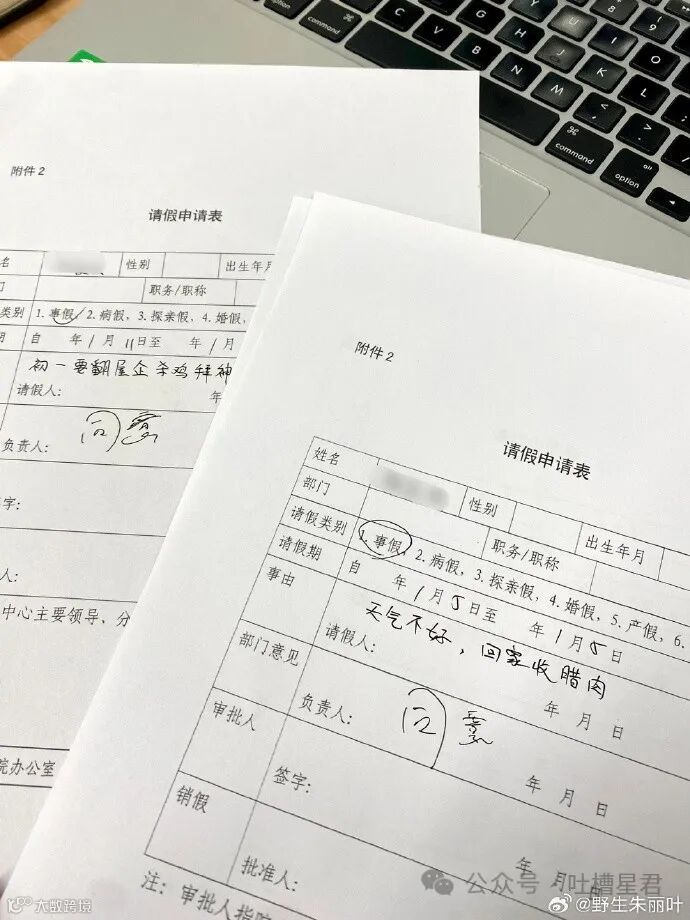 附件2
请假申请表
名 性别 出生年月
门 职务/职称
类别 1.事假, 2.病假, 3.探亲假, 4.婚假,
期 自 年1月11日至 年1月
初一要翻屋企杀鸡拜神
请假人: 年
负责人:
字:
人:
中心主要领导、分
院办公室
附件2
请假申请表
姓名 性别 出生年月
部门 职务/职称
请假类别 1.事假, 2.病假, 3.探亲假, 4.婚假, 5.产假, 6.
请假期 自 年1月5日至 年1月5日
事由 天气不好，回家收腊肉
请假人: 年 月 日
部门意见
负责人: 年 月 日
审批人
签字: 年 月 日
销假
批准人:
注: 审批人指
command
option
Z
X
C
V
B
N
M
H
J
K
L
Y
U
I
O
7
8
9
command
option
alt
大数跨境
公众号 吐槽星君
@野生朱丽叶